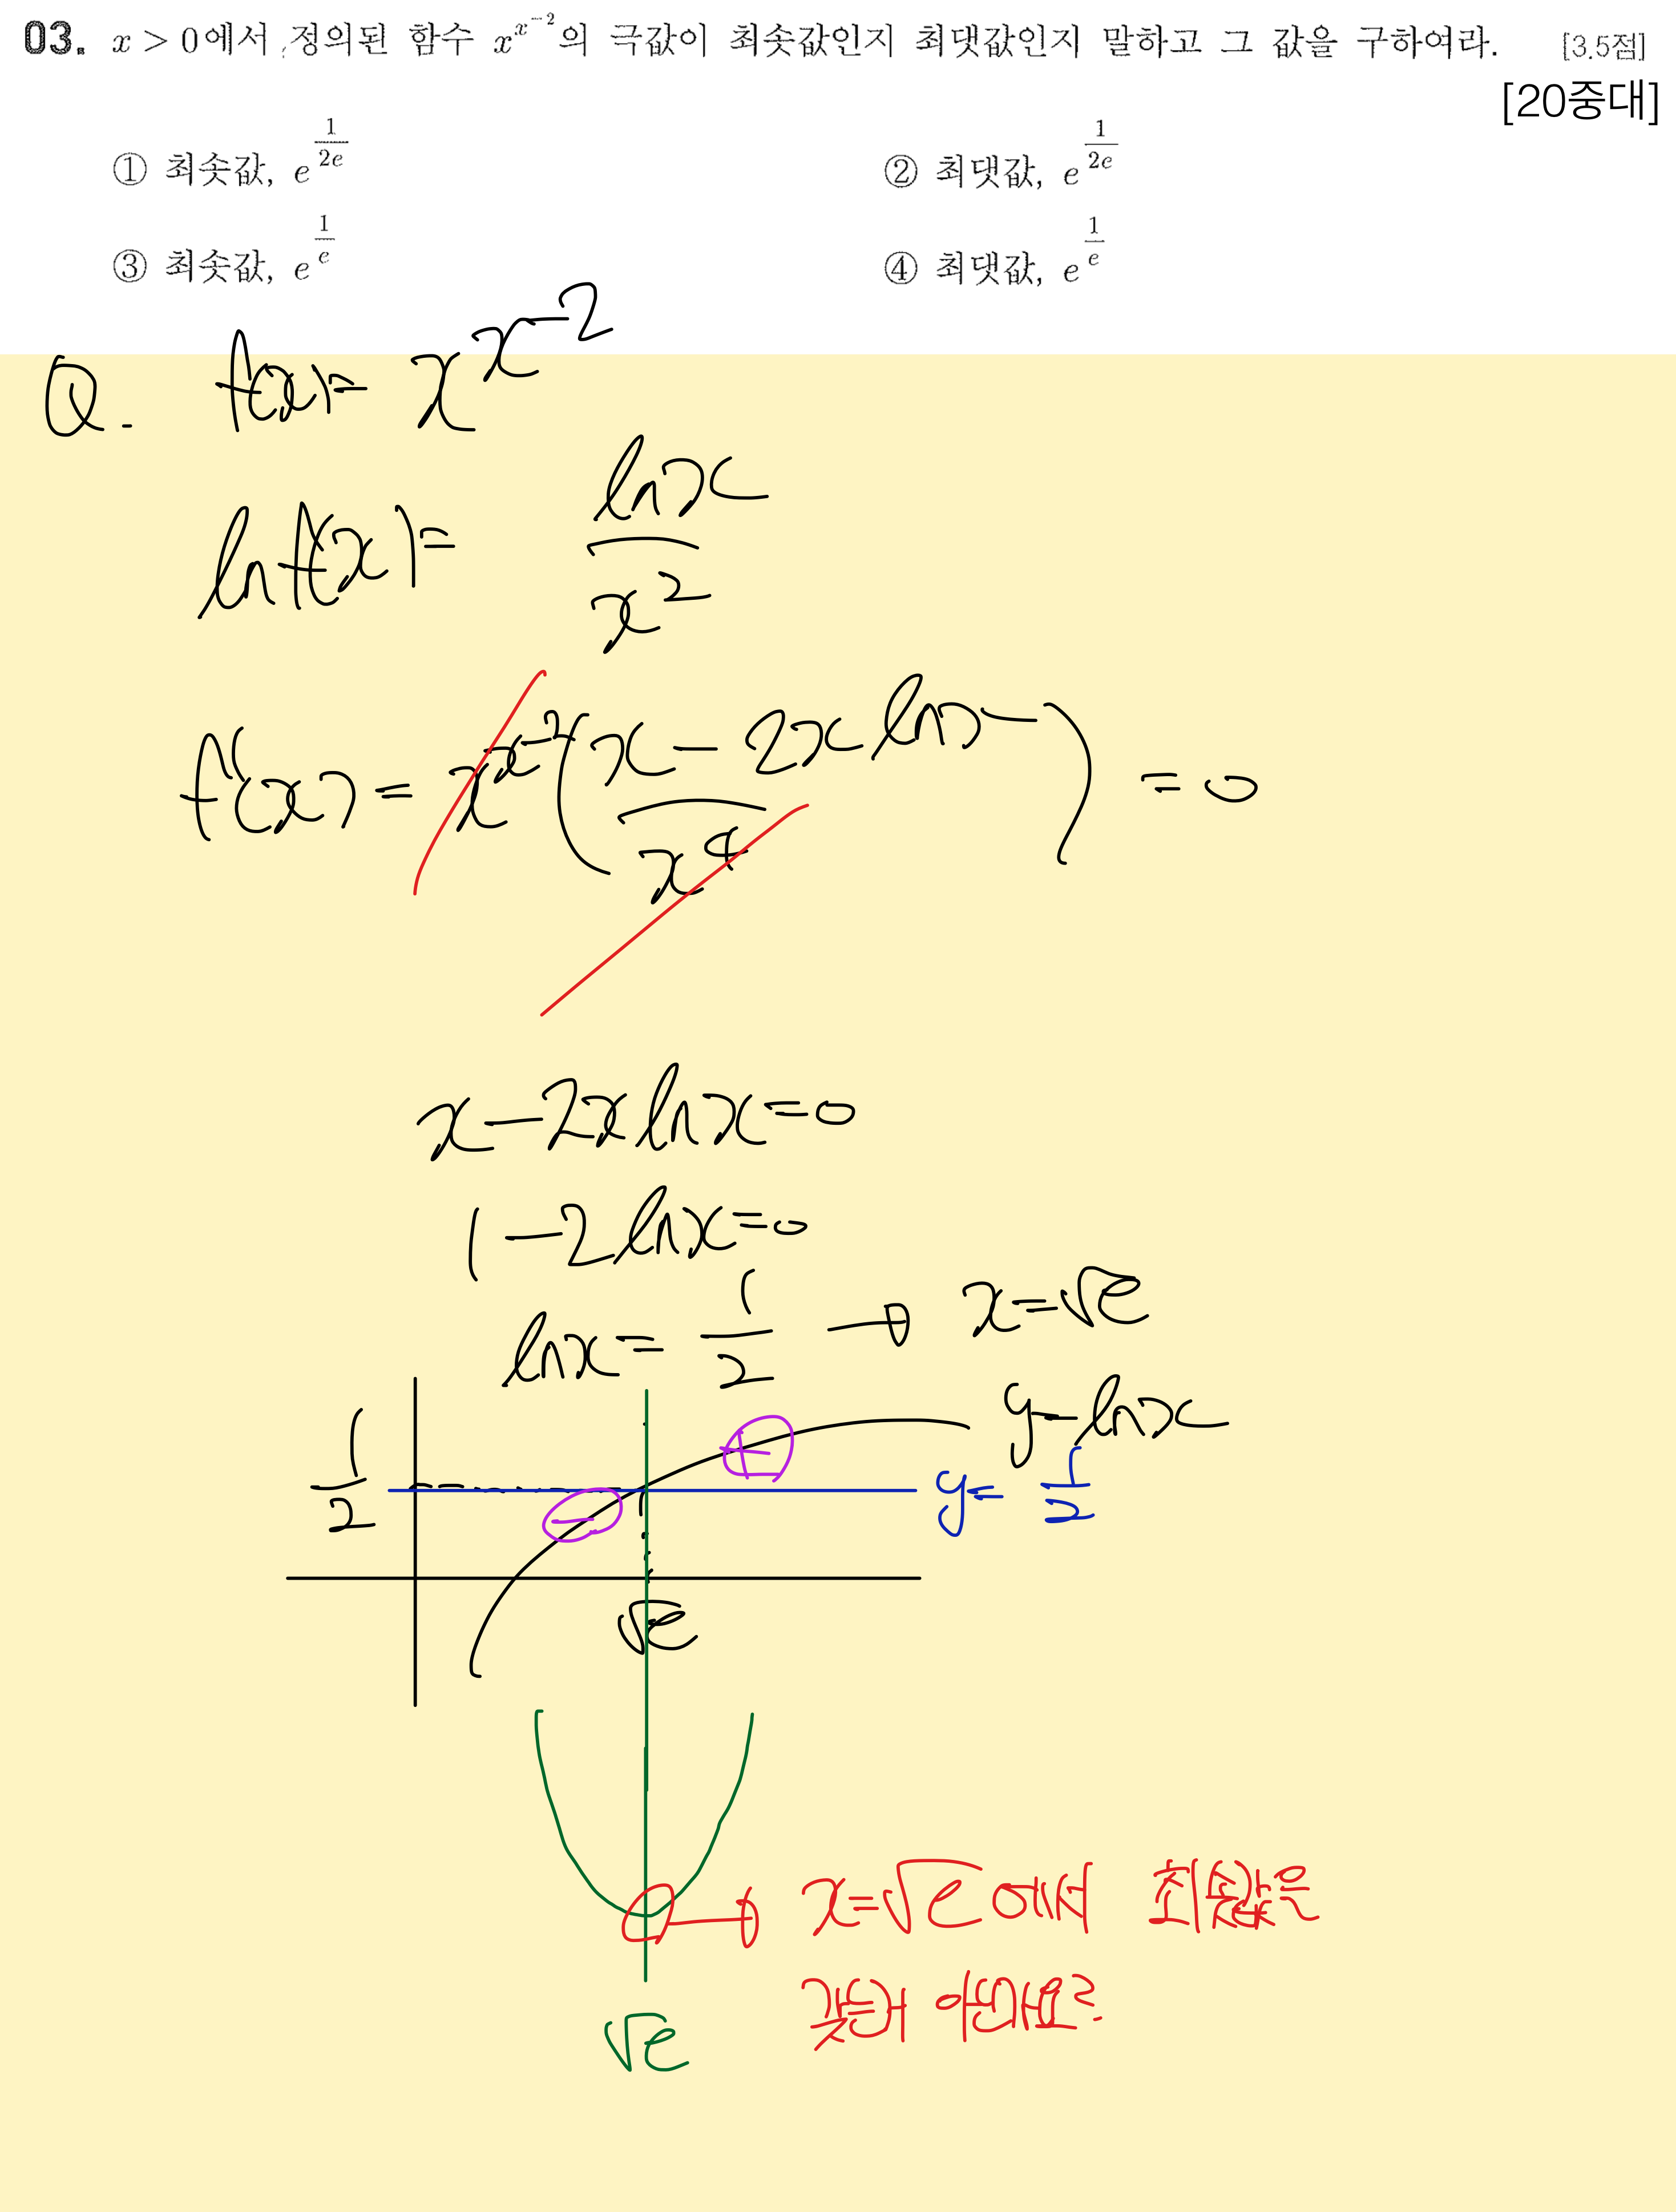 03. x > 0에서 정의된 함수 x^{x^{-2}}의 극값이 최솟값인지 최댓값인지 말하고 그 값을 구하여라. [3.5점]
[20중대]
① 최솟값, e^{\frac{1}{2e}} ② 최댓값, e^{\frac{1}{2e}}
③ 최솟값, e^{\frac{1}{e}} ④ 최댓값, e^{\frac{1}{e}}
Q. f(x) = x^{x^{-2}}
ln f(x) = \frac{ln x}{x^2}
f'(x) = x^{x^{-2}} ( \frac{x - 2x ln x}{x^4} ) = 0
x - 2x ln x = 0
1 - 2 ln x = 0
ln x = \frac{1}{2} → x = √e
y = ln x
+
\frac{1}{2}
y = \frac{1}{2}
-
√e
x = √e 에서 최솟값을
갖는거 아닌가요?
√e